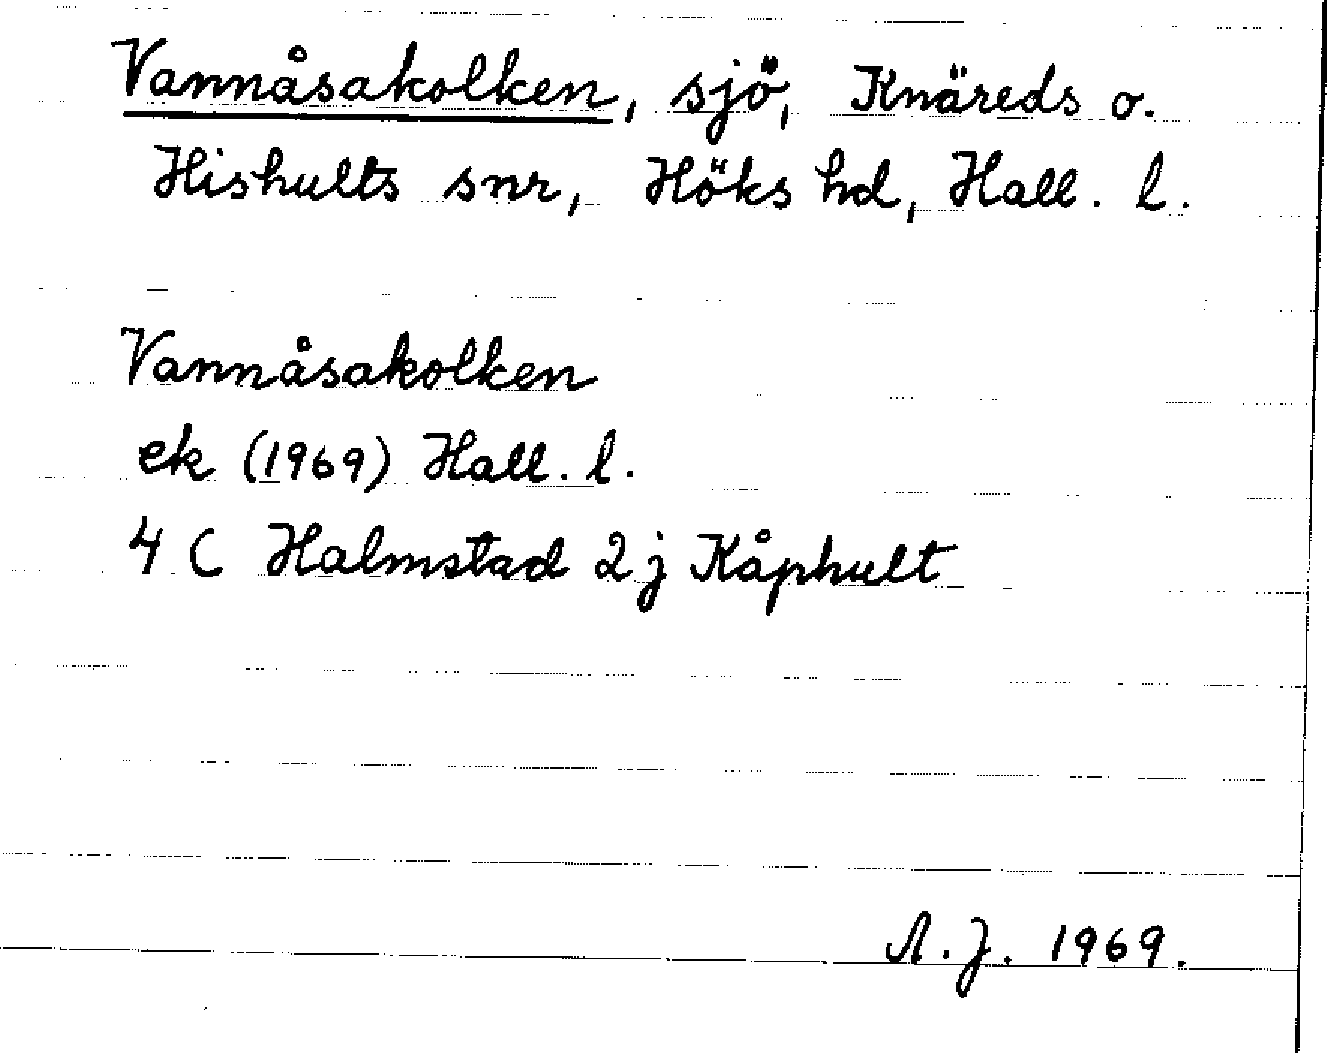 Vannåsakolken, sjö, Knäreds o.
Hishults snr, Höks hd, Hall. l.
Vannåsakolken
ek (1969) Hall. l.
4 C Halmstad 2 j Kåphult
A. J. 1969.